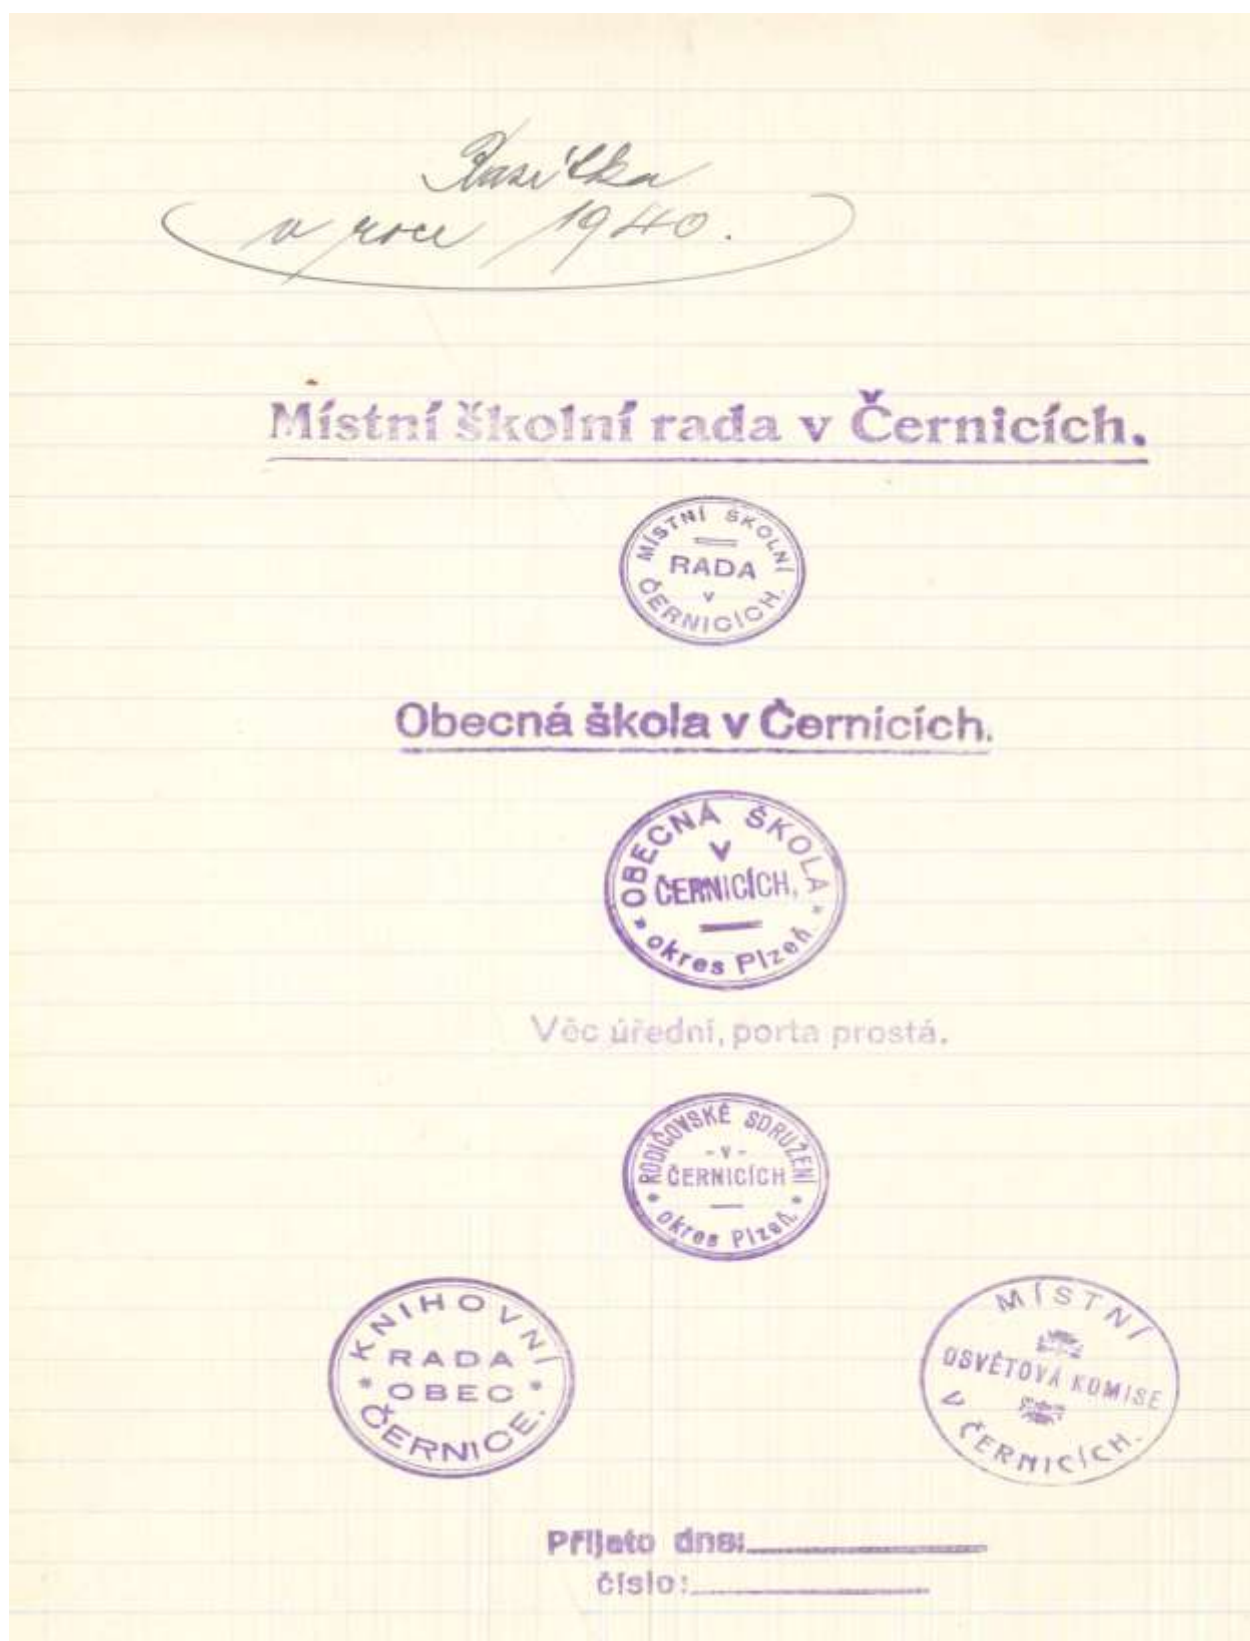 Razítka
v roce 1940.
Místní školní rada v Černicích.
MÍSTNÍ ŠKOLNÍ
RADA
v
ČERNICÍCH.
Obecná škola v Černicích.
OBECNÁ ŠKOLA
V
ČERNICÍCH,
okres Plzeň.
Věc úřední, porta prostá.
RODIČOVSKÉ SDRUŽENÍ
- v -
ČERNICÍCH
okres Plzeň.
KNIHOVNÍ
RADA
OBEC
ČERNICE.
MÍSTNÍ
OSVĚTOVÁ KOMISE
V ČERNICÍCH.
Přijato dne:
číslo: